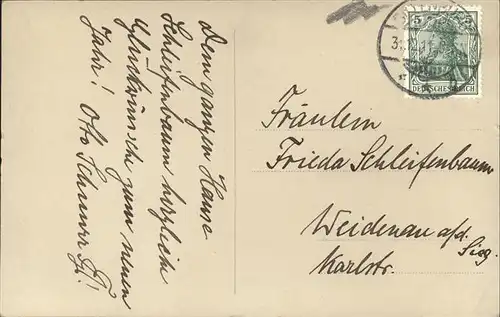 Dem ganzen Hause
Schleifenbaum herzliche
Glückwünsche zum neuen
Jahr! Otto
5
5
DEUTSCHES REICH
Fräulein
Frieda Schleifenbaum
Weidenau a/d. Sieg.
Karlstr.